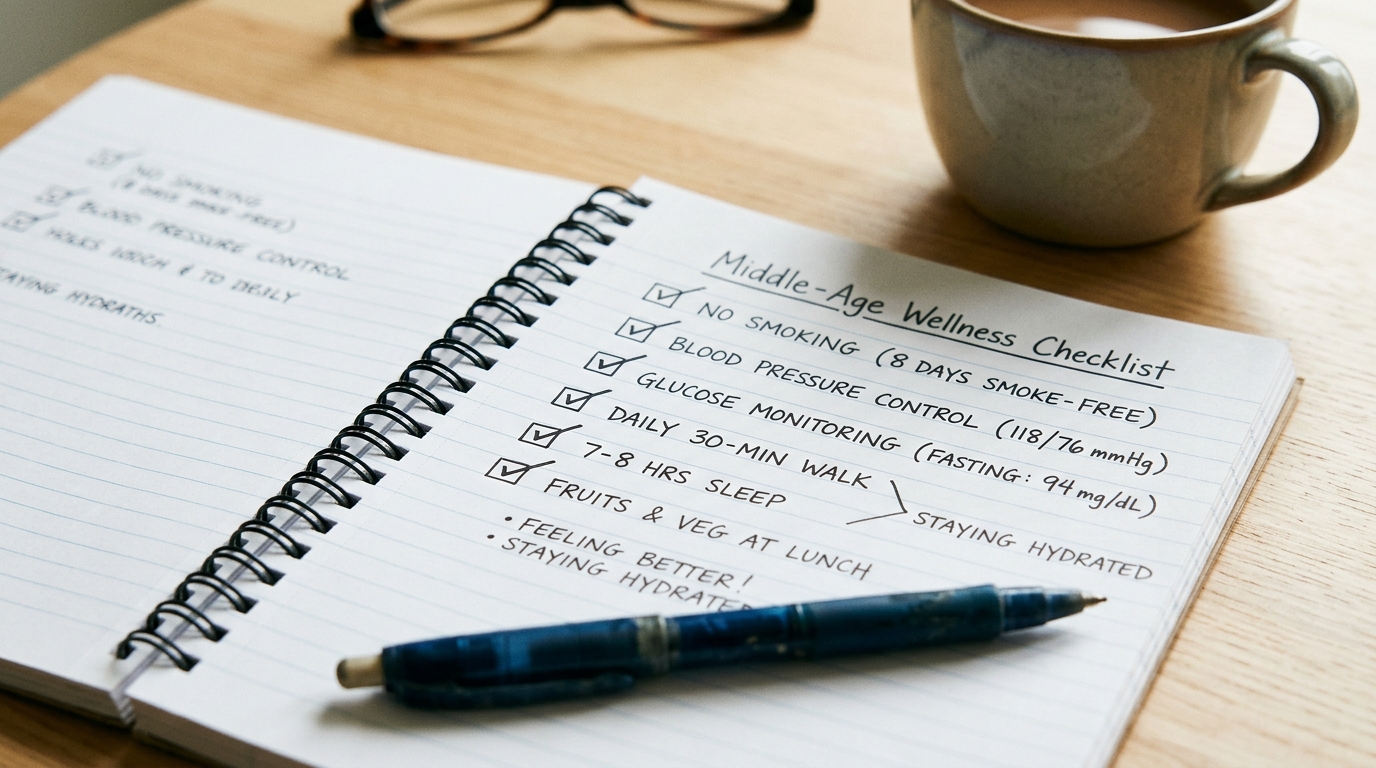 NO SMOKING
BLOOD PRESSURE CONTROL
Middle-Age Wellness Checklist
NO SMOKING (8 DAYS SMOKE-FREE)
BLOOD PRESSURE CONTROL (118/76 mmHg)
GLUCOSE MONITORING (FASTING: 94 mg/dL)
DAILY 30-MIN WALK
7-8 HRS SLEEP
STAYING HYDRATED
FRUITS & VEG AT LUNCH
• FEELING BETTER!
• STAYING HYDRATE